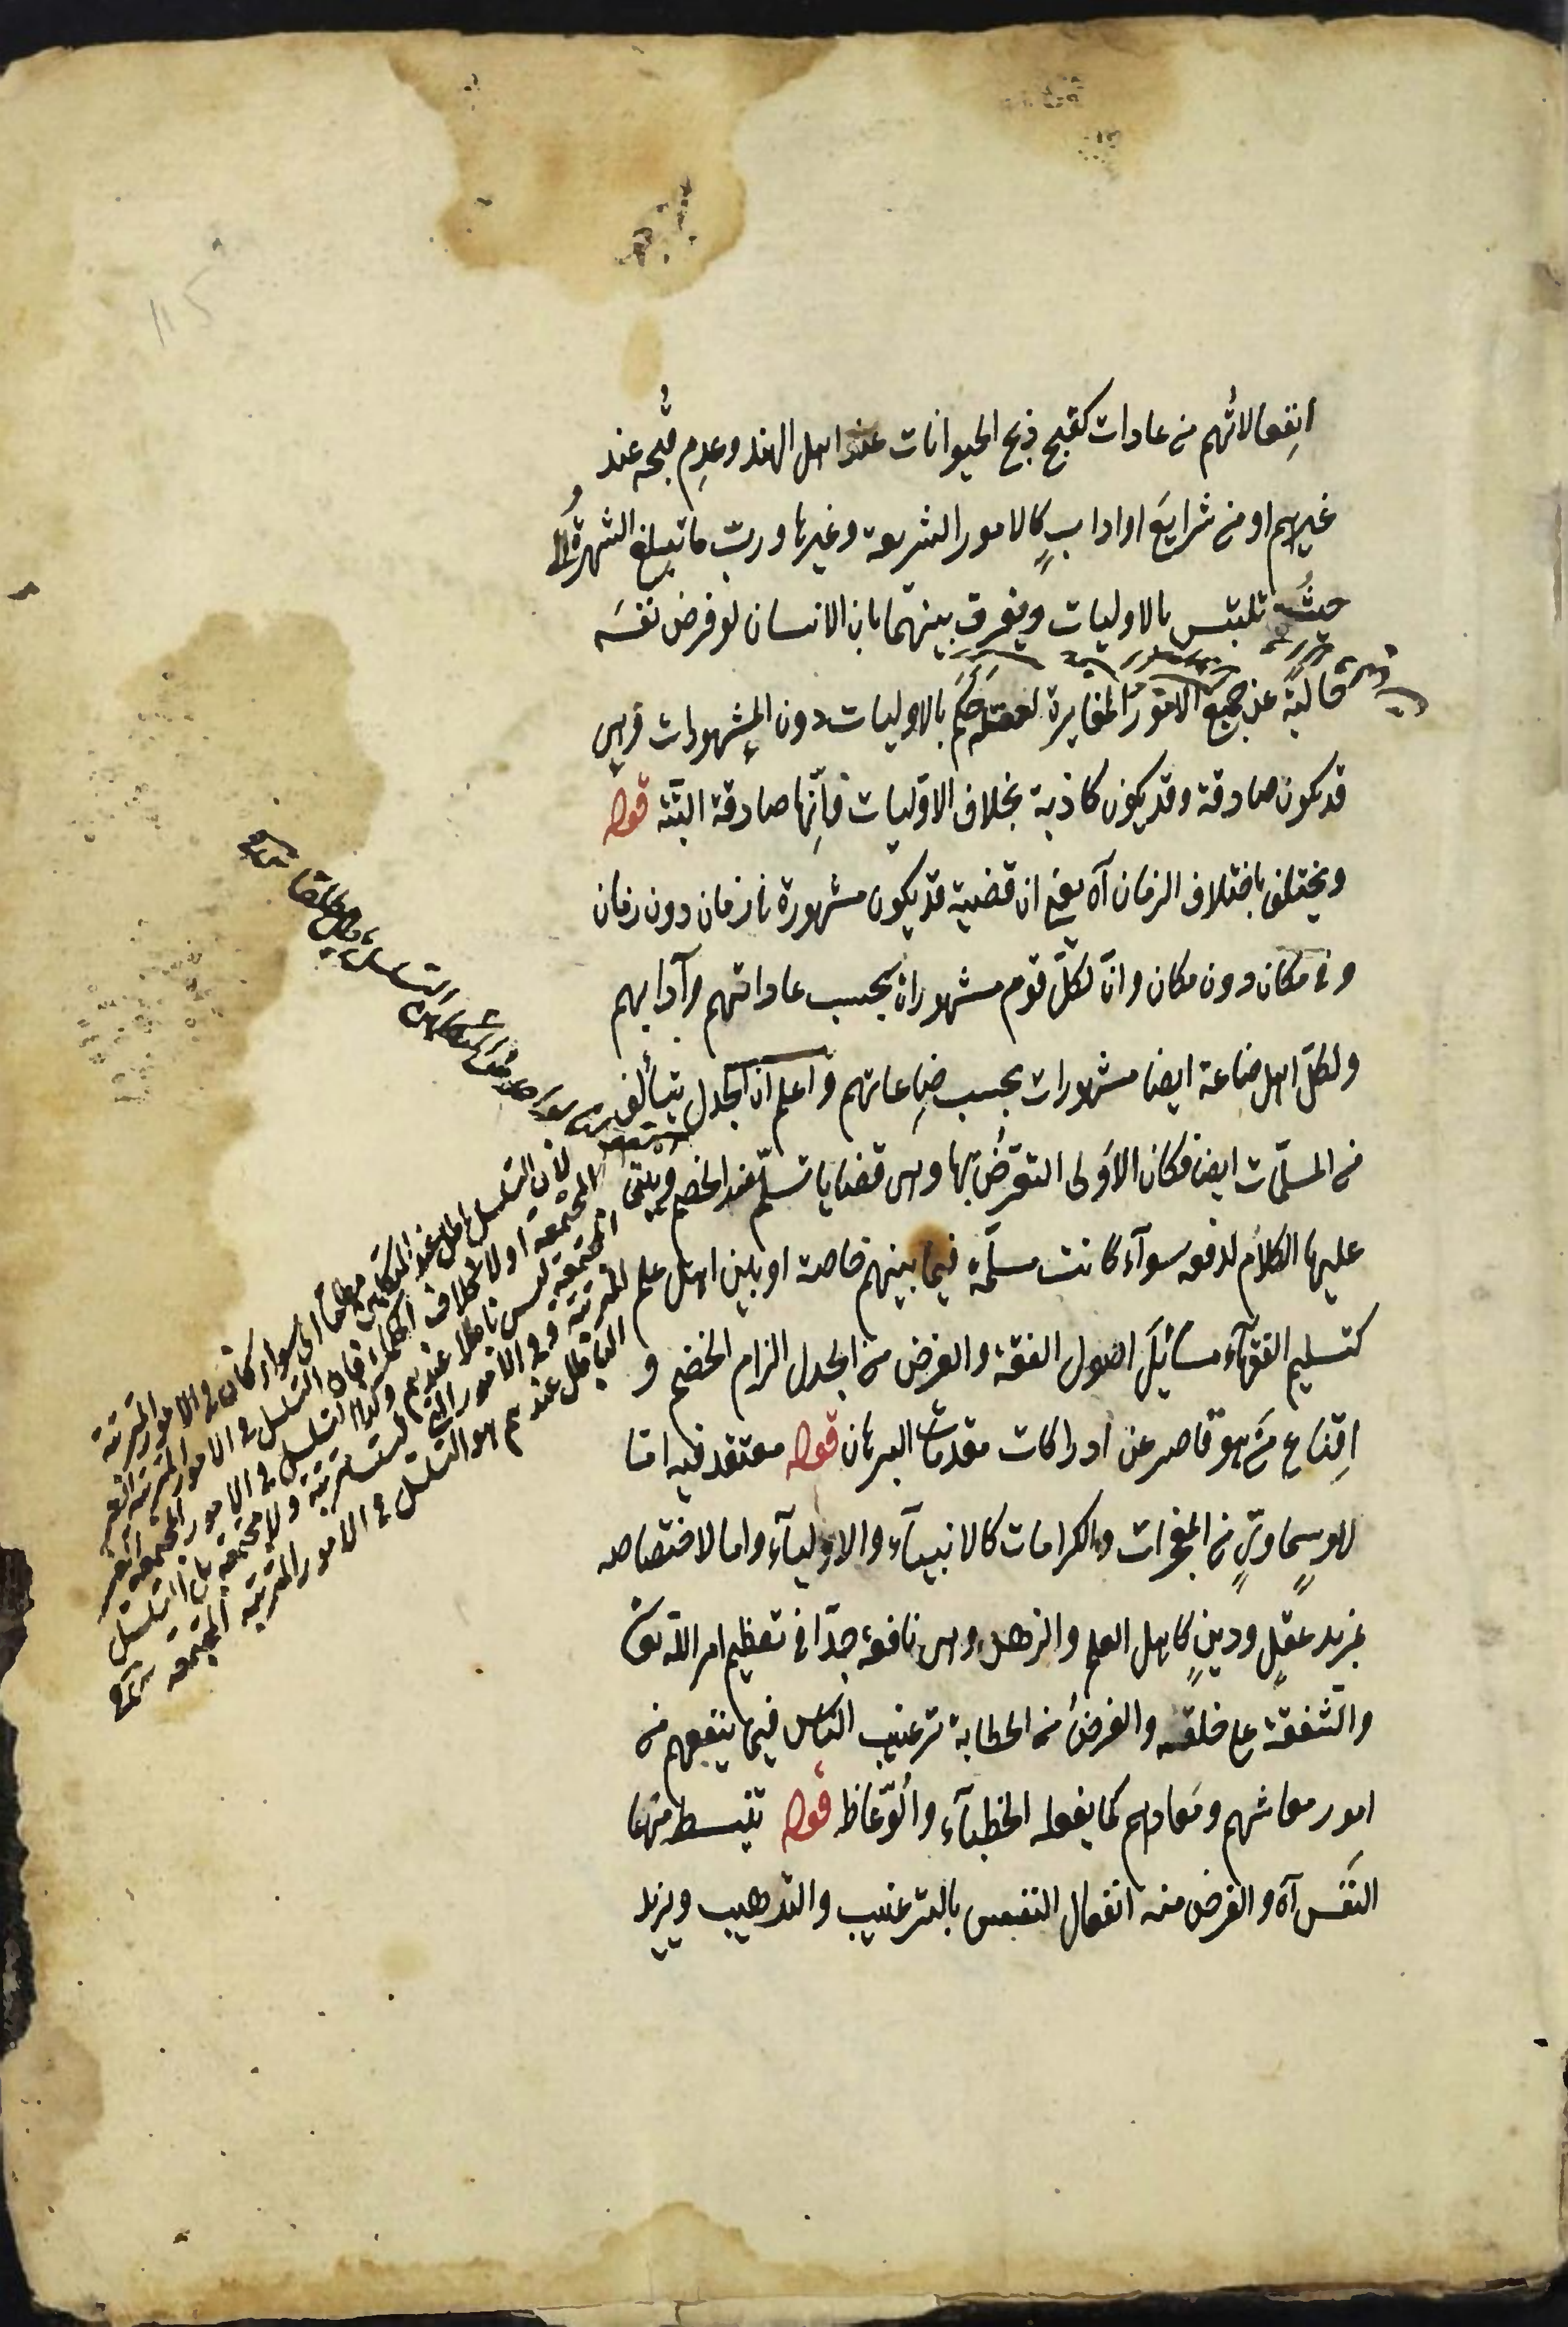 انفعالاتهم من عادات كقبح ذبح الحيوانات عند اهل الهند وعدم قبحه عند
غيرهم او من شرايع او اداب كالامور الشرعية وغيرها وربّ ما تبلغ الشهرة الى
حيث تلتبس بالاوليات ويفرق بينهما بان الانسان لو فرض نفسه
خالية عن جميع الامور المغايرة لعقله حكم بالاوليات دون المشهورات وهى
قد يكون صادقة وقد يكون كاذبة بخلاف الاوّليات فانّها صادقة البتّة قوله
ويختلف باختلاف الزمان آه يعنى ان قضية قد يكون مشهورة فى زمان دون زمان
وفى مكان دون مكان وانّ لكلّ قوم مشهورات بحسب عاداتهم وآدابهم
ولكلّ اهل صناعة ايضا مشهورات بحسب صناعاتهم واعلم ان الجدل يتألف
من المسلّمات ايضا فكان الاَولى التعرّض بها وهى قضايا تسلّم عند الخصم ويبتنى
عليها الكلام لدفعه سوآء كانت مسلّمة فيما بينهم خاصة او بين اهل علم
كتسليم الفقهآء مسائل اصول الفقه والغرض من الجدل الزام الخصم و
اقناع من هو قاصر عن ادراكات مقدمات البرهان قوله معتقد فيه امّا
لامر سماوىّ من المعجزات والكرامات كالانبيآء والاوليآء واما لاختصاصه
بمزيد عقل ودين كاهل العلم والزهد وهى نافعة جدّا فى تعظيم امر الله تعالى
والشّفقة على خلقه والغرض من الخطابة ترغيب الناس فيما ينفعهم من
امور معاشهم ومعادهم كما يفعله الخطبآء والوعّاظ قوله تنبسط منها
النفس آه والغرض منه انفعال النفس بالترغيب والترهيب ويزيد
لان التسلسل باطل عند المتكلمين مطلقا اى سواء كان فى الامور المترتبة
المجتمعة او لا بخلاف الحكماء فان التسلسل فى الامور المترتبة الغير
المجتمعة ليس باطلا عندهم وكذا التسلسل فى الامور المجتمعة الغير
المترتبة وفى الامور التى ليست مترتبة ولا مجتمعة بل التسلسل
الباطل عندهم هو التسلسل فى الامور المترتبة المجتمعة